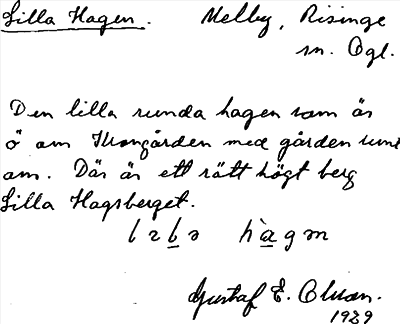 Lilla Hagen. Melby, Risinge
sn. Ögl.
Den lilla runda hagen som är
ö om Mongården med gården runt
om. Där är ett rätt högt berg
Lilla Hagsberget.
Gustaf E. Olson.
1929